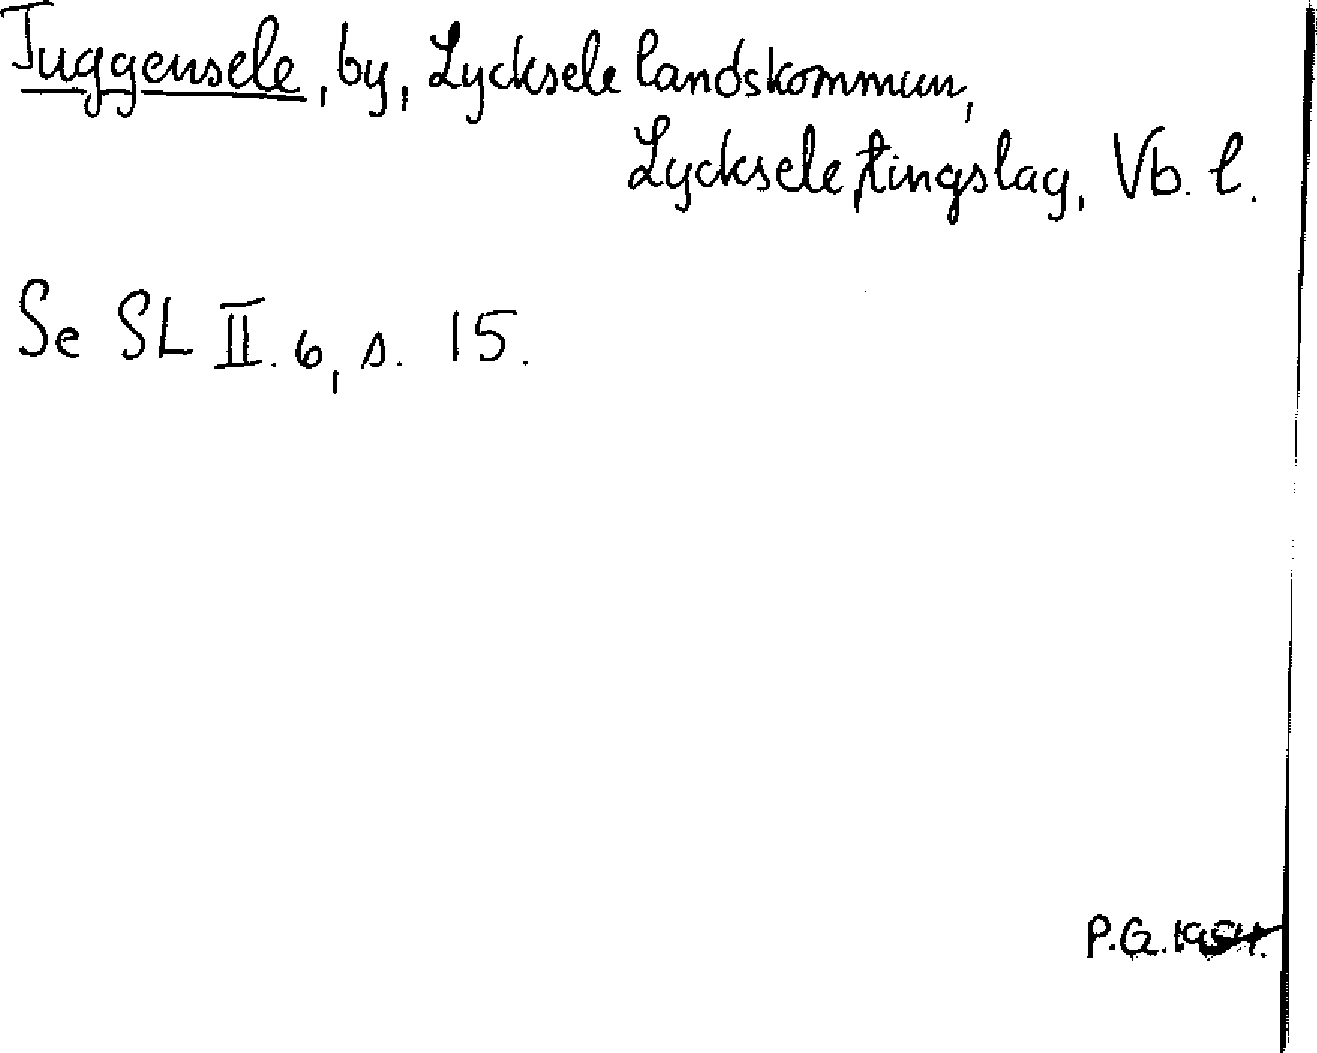 Tuggensele, by, Lycksele landskommun,
Lycksele tingslag, Vb. l.
Se SL II. 6, s. 15.
P.G. 1954.